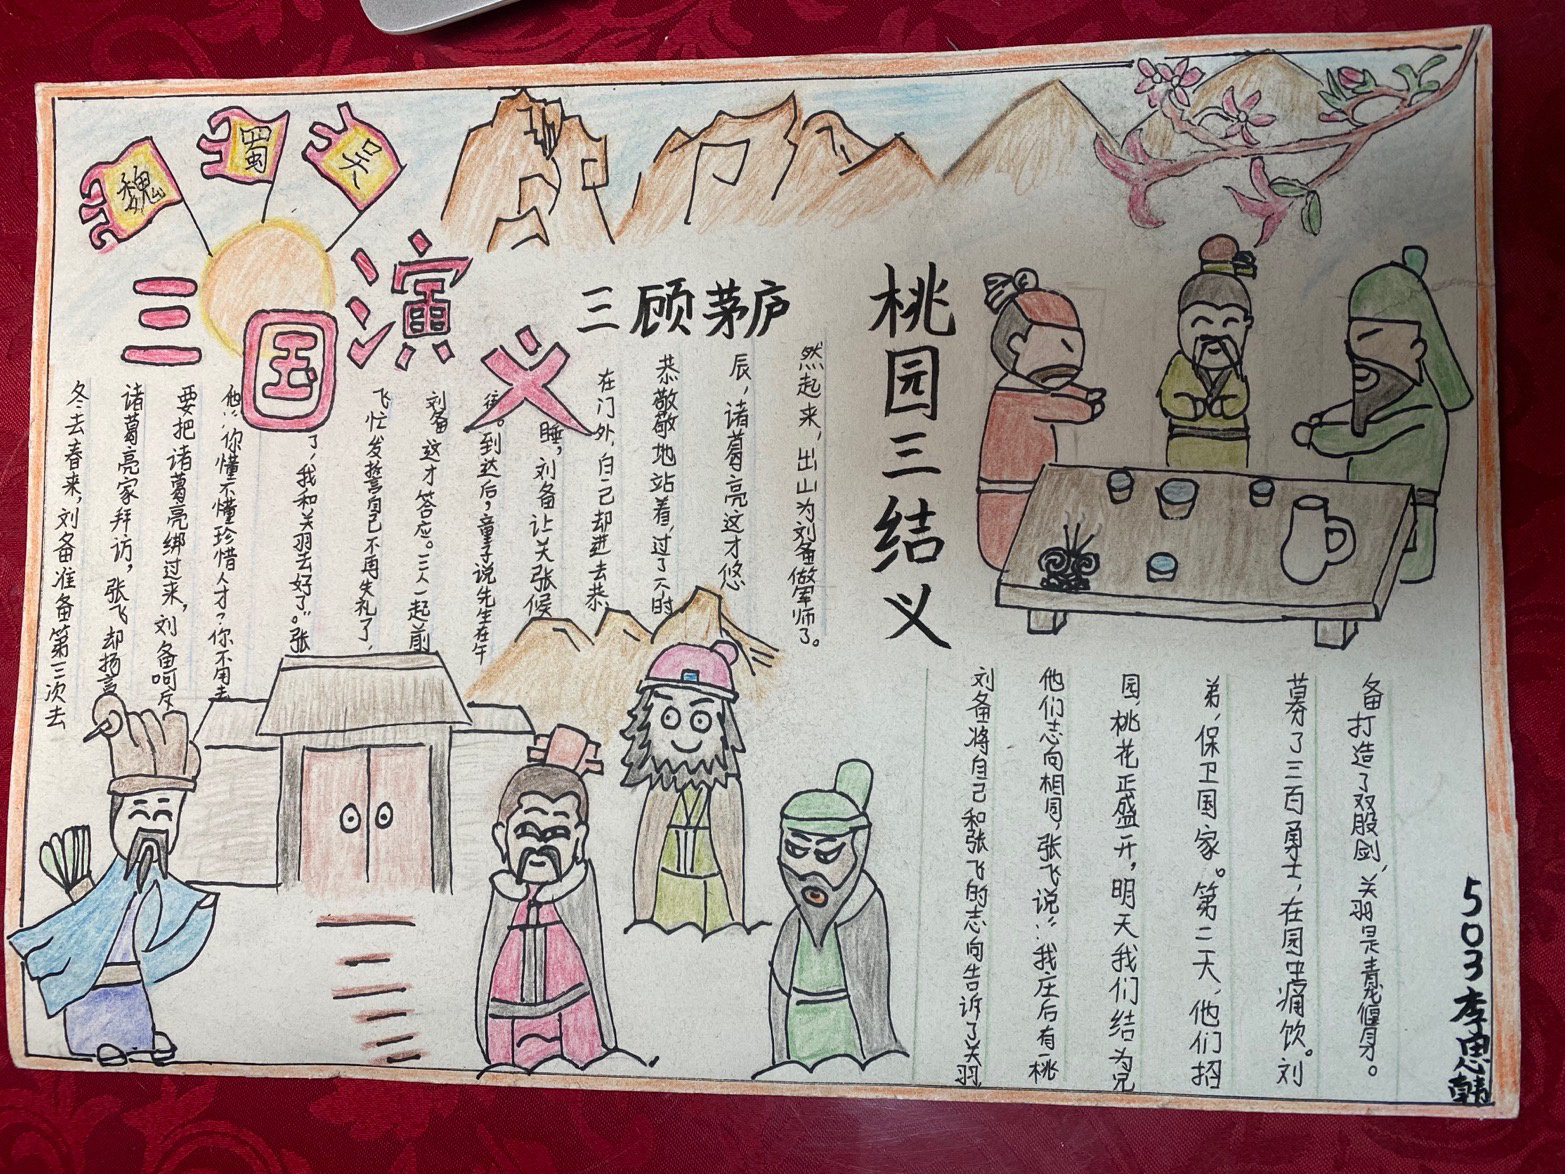 魏
蜀
吴
三国演义
三顾茅庐
冬去春来，刘备准备第三次去
诸葛亮家拜访，张飞却扬言
要把诸葛亮绑过来，刘备呵斥
他：“你懂不懂珍惜人才？你不用去
了，我和关羽去好了。”张
飞忙发誓自己不再失礼了，
刘备这才答应。三人一起前
往。到达后，童子说先生在午
睡，刘备让关张候
在门外，自己却进去恭
恭敬敬地站着，过了一个时
辰，诸葛亮这才悠
然起来，出山为刘备做军师了。
桃园三结义
刘备将自己和张飞的志向告诉了关羽
他们志向相同，张飞说：我庄后有一桃
园，桃花正盛开，明天我们结为兄
弟，保卫国家。第二天，他们招
募了三百勇士，在园里痛饮。刘
备打造了双股剑，关羽是青龙偃月刀。
503李思韩